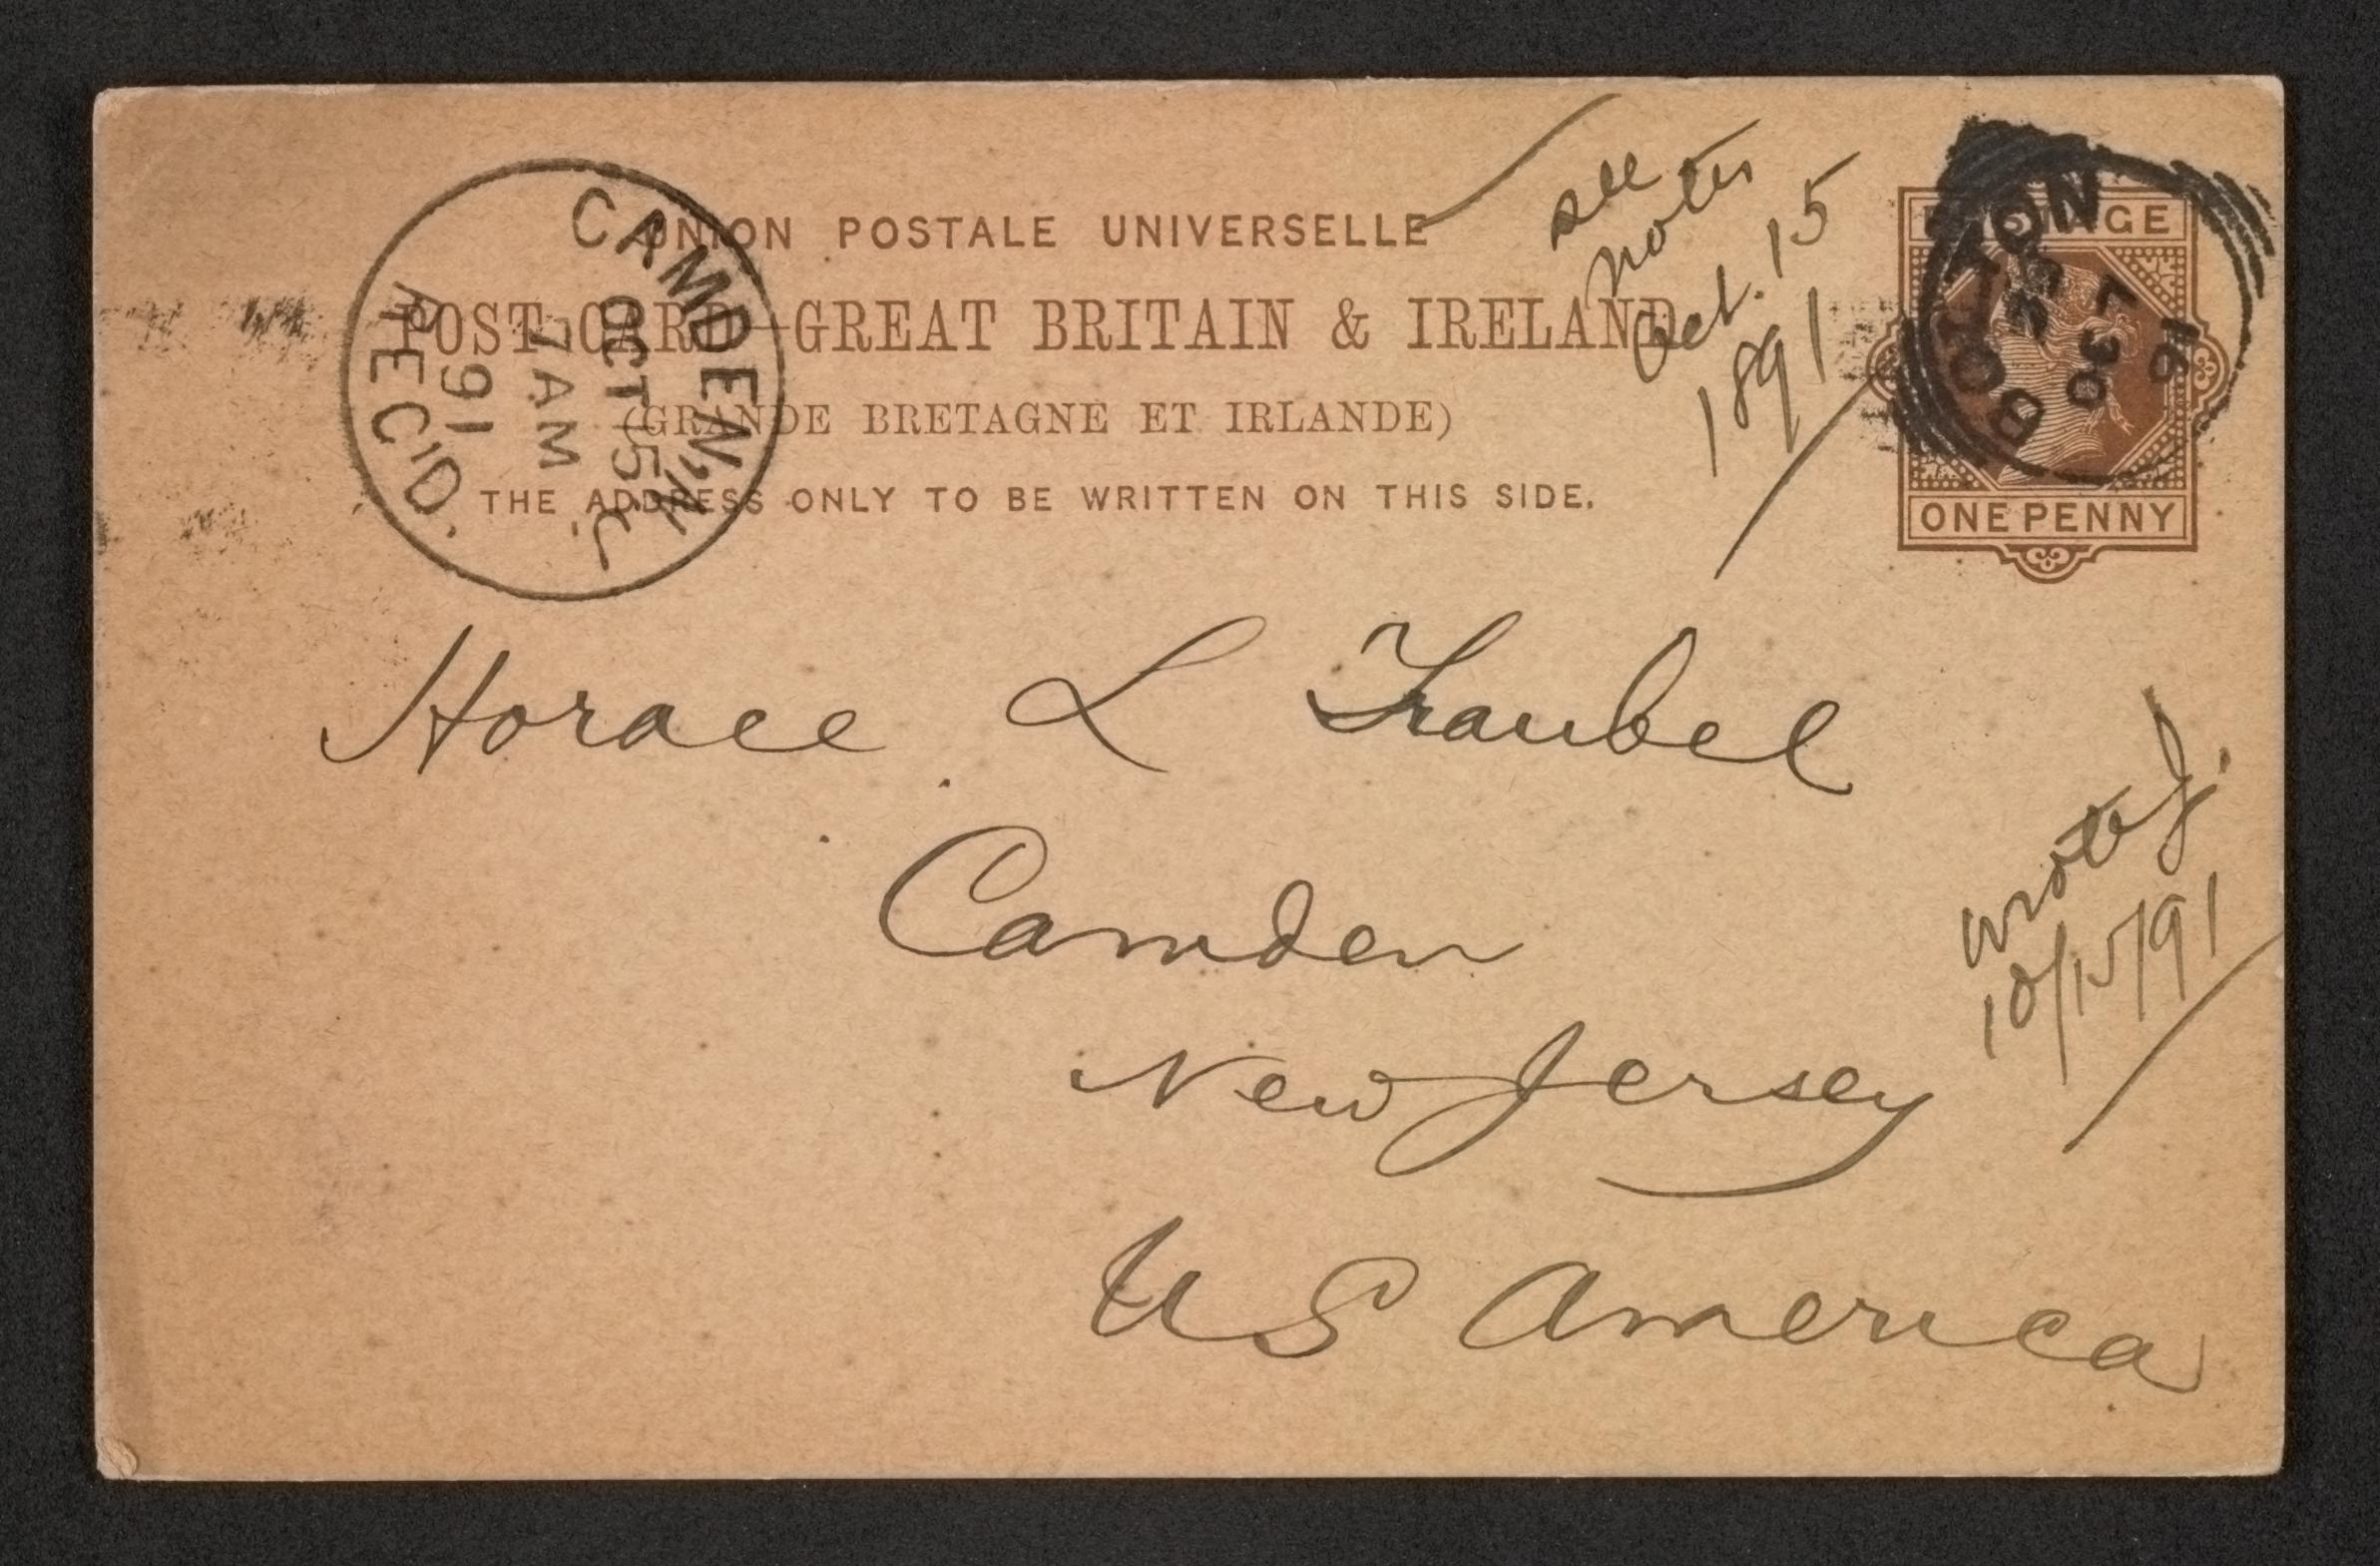 UNION POSTALE UNIVERSELLE
POST CARD—GREAT BRITAIN & IRELAND
(GRANDE BRETAGNE ET IRLANDE)
THE ADDRESS ONLY TO BE WRITTEN ON THIS SIDE.
CAMDEN, N.J.
OCT 15
7 AM
91
REC'D.
see
notes
Oct. 15
1891
ONE PENNY
BOLTON
OC 7
91
Horace L Traubel
Camden
New Jersey
U S America
wrote J.
10/15/91